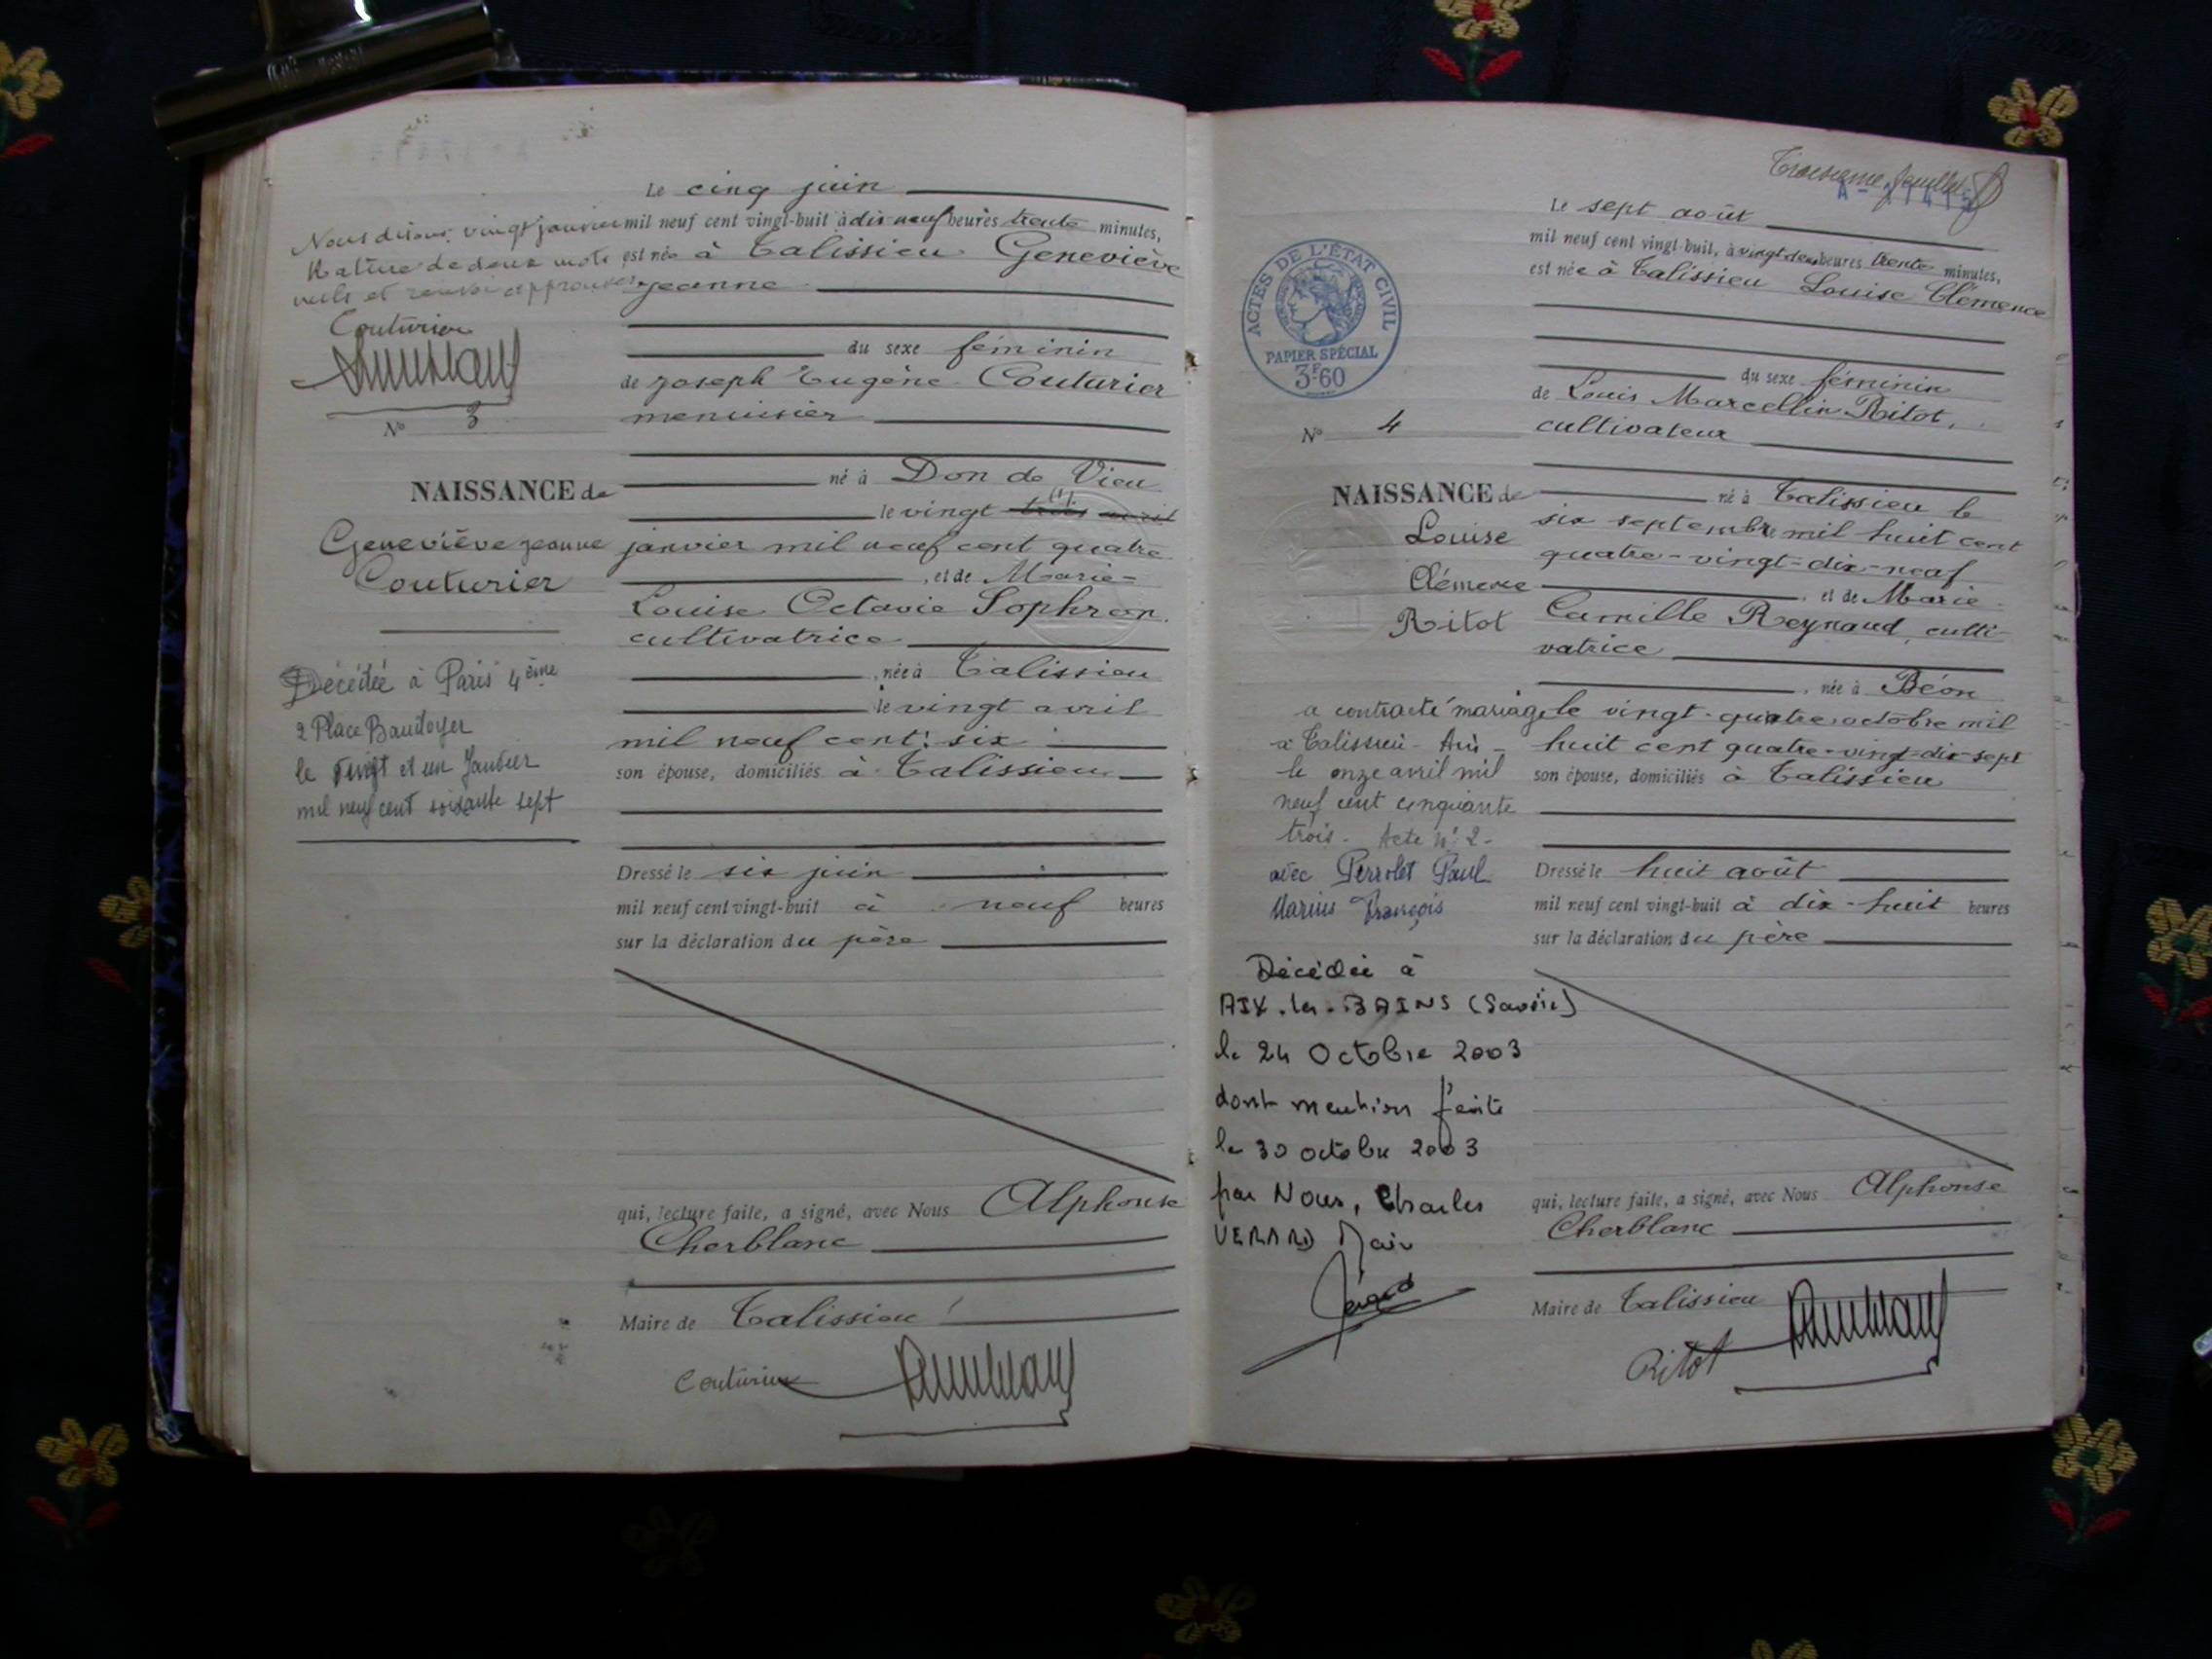 Le cinq juin
mil neuf cent vingt-huit à dix neuf heures trente minutes,
est née à Talissieu Geneviève
Jeanne
du sexe féminin
de Joseph Eugène Couturier
menuisier
né à Don de Vieu
le vingt trois avril
(1)
janvier mil neuf cent quatre
, et de Marie-
Louise Octavie Sophron,
cultivatrice
, née à Talissieu
le vingt avril
mil neuf cent six
son épouse, domiciliés à Talissieu
Dressé le six juin
mil neuf cent vingt-huit à neuf heures
sur la déclaration du père
qui, lecture faite, a signé, avec Nous Alphonse
Cherblanc
Maire de Talissieu
Couturier
Nous disons vingt janvier
Rature de deux mots
nuls et renvoi approuvés
Couturier
N° 3
NAISSANCE de
Geneviève Jeanne
Couturier
Décédée à Paris 4ème
2 Place Baudoyer
le vingt et un Janvier
mil neuf cent soixante sept
Troisième feuillet
Le sept août
mil neuf cent vingt-huit, à vingt deux heures trente minutes,
est née à Talissieu Louise Clémence
du sexe féminin
de Louis Marcellin Ritot,
cultivateur
né à Talissieu le
six septembre mil huit cent
quatre-vingt-dix-neuf
, et de Marie
Camille Reynaud, culti-
vatrice
, née à Béon
le vingt-quatre octobre mil
huit cent quatre-vingt-dix-sept
son épouse, domiciliés à Talissieu
Dressé le huit août
mil neuf cent vingt-huit à dix-huit heures
sur la déclaration du père
qui, lecture faite, a signé, avec Nous Alphonse
Cherblanc
Maire de Talissieu
Ritot
ACTES DE L'ÉTAT CIVIL
PAPIER SPÉCIAL
3F60
N° 4
NAISSANCE de
Louise
Clémence
Ritot
a contracté mariage
à Talissieu - Ain -
le onze avril mil
neuf cent cinquante
trois - Acte N° 2 -
avec Perrolet Paul
Marius François
Décédée à
AIX-les-BAINS (Savoie)
le 24 Octobre 2003
dont mention faite
le 30 octobre 2003
par Nous, Charles
VERARD Maire